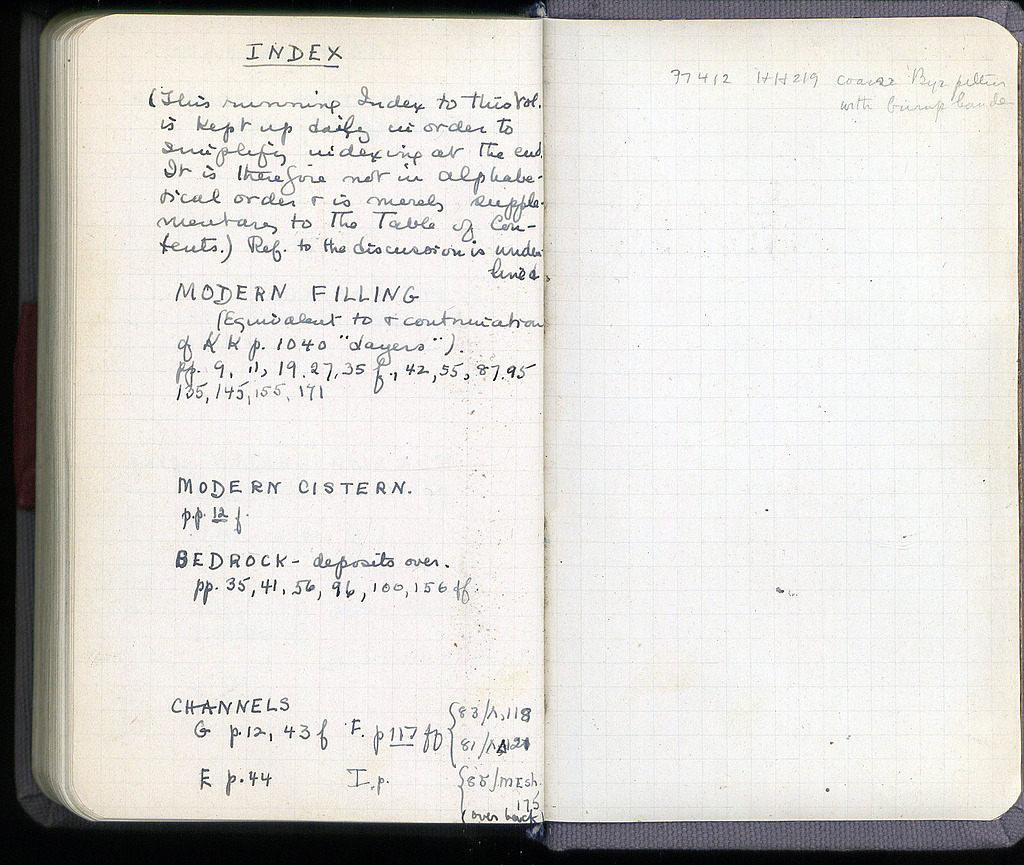 INDEX
(This running Index to this Vol.
is kept up daily in order to
simplify indexing at the end.
It is therefore not in alphabe-
tical order & is merely supple-
mentary to the Table of Con-
tents.) Ref. to the discussion is under-
lined.
MODERN FILLING
(Equivalent to & continuation
of KK p. 1040 "Layers").
pp. 9, 11, 19, 27, 35 f., 42, 55, 87, 95
135, 145, 155, 171
MODERN CISTERN.
pp. 12 f.
BEDROCK - deposits over.
pp. 35, 41, 56, 96, 100, 156 ff.
CHANNELS
G p. 12, 43 f F. p 117 ff {83/Λ, 118
81/Λ, 121
E p. 44 I. p. {85/MESh.
175
(over back)
37412 HH 219 coarse Byz
with